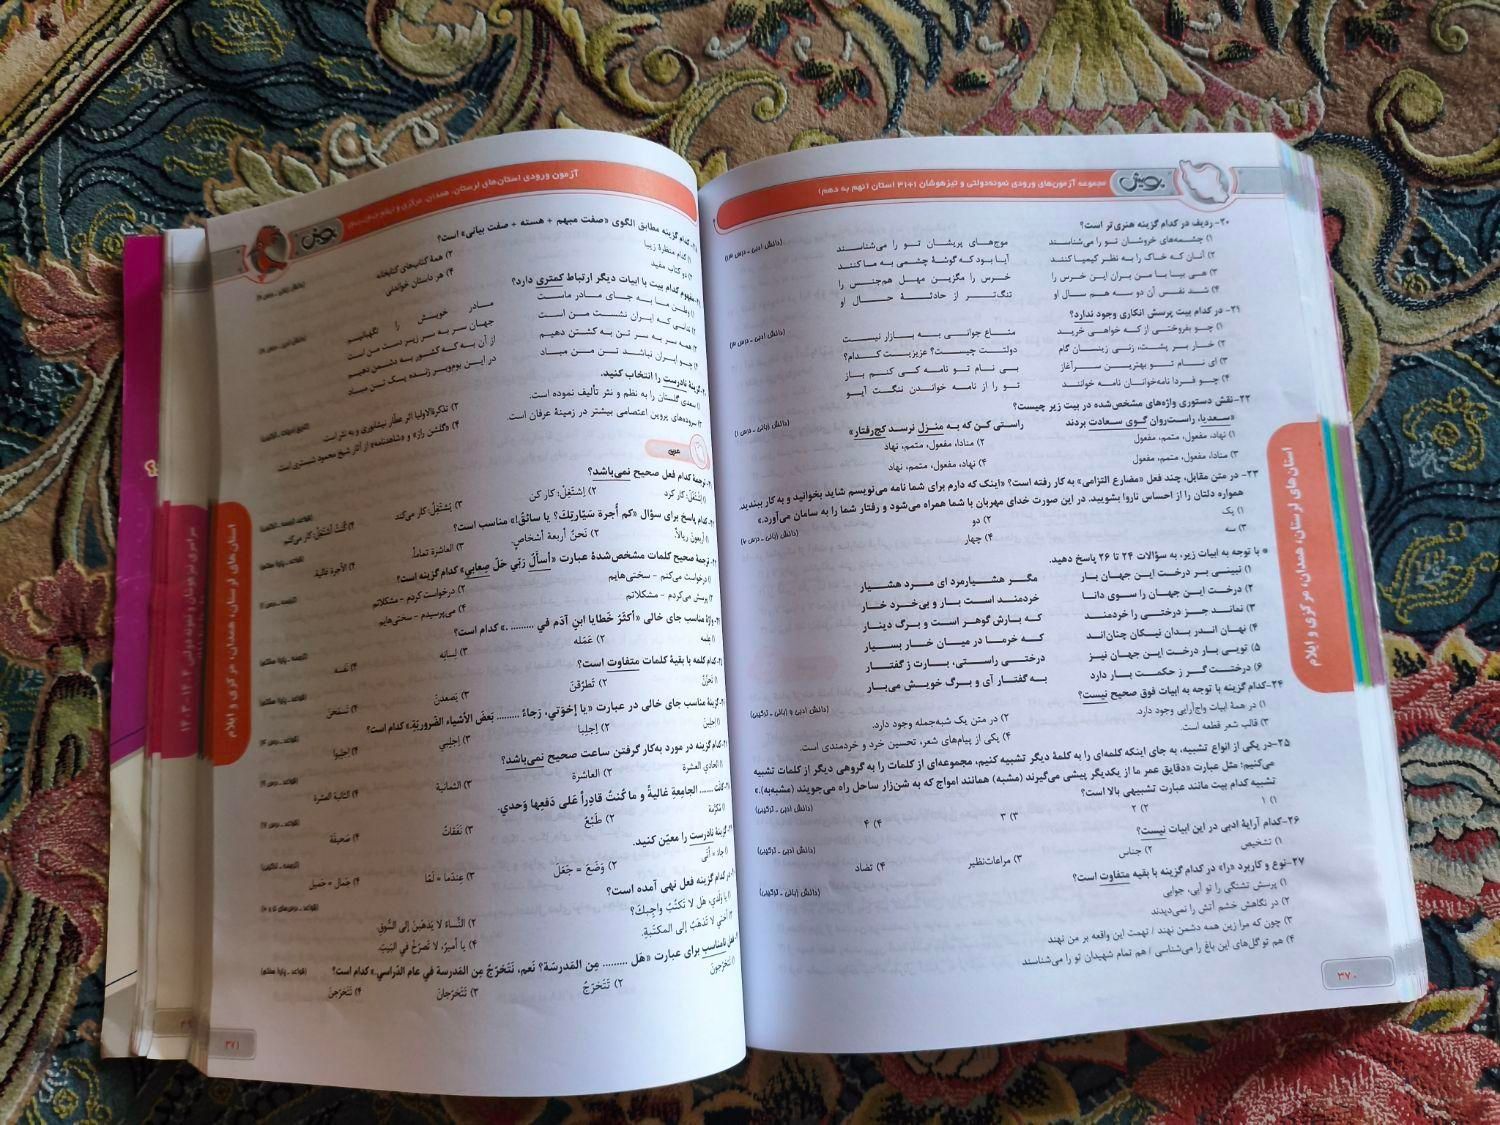 مجموعه آزمون‌های ورودی نمونه‌دولتی و تیزهوشان ۱+۳۱ استان (نهم به دهم)
۲۰- ردیف در کدام گزینه هنری تر است؟
۱) چشمه‌های خروشان تو را می‌شناسند موج‌های پریشان تو را می‌شناسند
۲) آنان که خاک را به نظر کیمیا کنند آیا بود که گوشهٔ چشمی به ما کنند
۳) هی بیا با من بران این خرس را خرس را مگزین مهل هم‌جنس را
۴) شد نفس آن دو سه هم سال او تنگ‌تر از حادثهٔ حال او
۲۱- در کدام بیت پرسش انکاری وجود ندارد؟
۱) چو بفروختی از که خواهی خرید متاع جوانی به بازار نیست
۲) خار بر پشت، زنی زینسان گام دولتت چیست؟ عزیزیت کدام؟
۳) ای نام تو بهترین سرآغاز بی نام تو نامه کی کنم باز
۴) چو فردا نامه‌خوانان نامه خوانند تو را از نامه خواندن ننگت آیو
۲۲-نقش دستوری واژه‌های مشخص‌شده در بیت زیر چیست؟
«سعدیا، راست‌روان گوی سعادت بردند راستی کن که به منزل نرسد کج‌رفتار»
۱) نهاد، مفعول، متمم، مفعول
۲) منادا، مفعول، متمم، نهاد
۳) منادا، مفعول، متمم، مفعول
۴) نهاد، مفعول، متمم، نهاد
۲۳- در متن مقابل، چند فعل «مضارع التزامی» به کار رفته است؟ «اینک که دارم برای شما نامه می‌نویسم شاید بخوانید و به کار ببندید.
همواره دلتان را از احساس ناروا بشویید. در این صورت خدای مهربان با شما همراه می‌شود و رفتار شما را به سامان می‌آورد.»
۱) یک
۲) دو
۳) سه
۴) چهار
* با توجه به ابیات زیر، به سؤالات ۲۴ تا ۲۶ پاسخ دهید.
۱) نبینی بر درخت این جهان بار مگر هشیارمرد ای مرد هشیار
۲) درخت این جهان را سوی دانا خردمند است بار و بی‌خرد خار
۳) نماند جز درختی را خردمند که بارش گوهر است و برگ دینار
۴) نهان اندر بدان نیکان چنان‌اند که خرما در میان خار بسیار
۵) تویی بار درخت این جهان نیز درختی راستی، بارت ز گفتار
۶) درختت گر ز حکمت بار دارد به گفتار آی و برگ خویش می‌بار
۲۴-کدام گزینه با توجه به ابیات فوق صحیح نیست؟
۱) در همهٔ ابیات واج‌آرایی وجود دارد.
۲) در متن یک شبه‌جمله وجود دارد.
۳) قالب شعر قطعه است.
۴) یکی از پیام‌های شعر، تحسین خرد و خردمندی است.
۲۵-در یکی از انواع تشبیه، به جای اینکه کلمه‌ای را به کلمهٔ دیگر تشبیه کنیم، مجموعه‌ای از کلمات را به گروهی دیگر از کلمات تشبیه
می‌کنیم؛ مثل عبارت «دقایق عمر ما از یکدیگر پیشی می‌گیرند (مشبه) همانند امواج که به شن‌زار ساحل راه می‌جویند (مشبه‌به).»
تشبیه کدام بیت مانند عبارت تشبیهی بالا است؟
۱) ۱ ۲) ۲ ۳) ۳ ۴) ۴
۲۶-کدام آرایهٔ ادبی در این ابیات نیست؟
۱) تشخیص ۲) جناس ۳) مراعات‌نظیر ۴) تضاد
۲۷-نوع و کاربرد «را» در کدام گزینه با بقیه متفاوت است؟
۱) پرسش تشنگی را تو آبی، جوابی
۲) در نگاهش خشم آتش را نمی‌دیدند
۳) چون که مرا زین همه دشمن نهند / تهمت این واقعه بر من نهند
۴) هم تو گل‌های این باغ را می‌شناسی / هم تمام شهیدان تو را می‌شناسند
۳۷۰
استان‌های لرستان، همدان، مرکزی و ایلام
آزمون ورودی استان‌های لرستان، همدان، مرکزی و
کدام گزینه مطابق الگوی «صفت مبهم + هسته + صفت بیانی» است؟
۱) کدام منظرهٔ زیبا
۲) همهٔ کتاب‌های کتابخانه
۳) دو کتاب مفید
۴) هر داستان خواندنی
مفهوم کدام بیت با ابیات دیگر ارتباط کمتری دارد؟
۱) وطن، ما به جای مادر ماست مادر خویش را نگهبانیم
۲) ندانی که ایران نشست من است جهان سر به سر زیر دست من است
۳) همه سر به سر تن به کشتن دهیم از آن به که کشور به دشمن دهیم
۴) چو ایران نباشد تن من مباد در این بوم‌وبر زنده یک تن مباد
گزینهٔ نادرست را انتخاب کنید.
۱) سعدی گلستان را به نظم و نثر تألیف نموده است.
۲) تذکرةالاولیا اثر عطّار نیشابوری و به نثر است.
۳) سروده‌های پروین اعتصامی بیشتر در زمینهٔ عرفان است.
۴) «گلشن راز» و «شاهدنامه» از آثار شیخ محمود شبستری است.
عربی
ترجمهٔ کدام فعل صحیح نمی‌باشد؟
۱) اِشْتَغَلَ: کار کرد ۲) اِشتَغِلْ: کار کن ۳) یَشْتَغِلُ: کار می‌کند ۴) کُنْتُ أشْتَغِلُ: کار می‌کنم
کدام پاسخ برای سؤال «کم أُجرة سَیّارتِكَ؟ یا سائقُ!» مناسب است؟
۱) أربعونَ ریالاً. ۲) نَحنُ أربعة أشخاصٍ. ۳) العاشرة تماماً. ۴) الأجرة غالیة.
ترجمهٔ صحیح کلمات مشخص‌شدهٔ عبارت «أسألُ رَبّي حَلَّ صِعابي» کدام گزینه است؟
۱) درخواست می‌کنم - سختی‌هایم
۲) درخواست کردم - مشکلاتم
۳) پرسش می‌کردم - مشکلاتم
۴) می‌پرسیدم - سختی‌هایم
واژهٔ مناسب جای خالی «أکثَرُ خَطایا ابنِ آدَمَ في ......... .» کدام است؟
۲) عَمَله ۳) لِسانِه
کدام کلمه با بقیهٔ کلمات متفاوت است؟
۲) تَطرُقنَ ۳) یَصعدنَ ۴) تَسمَحنَ
گزینهٔ مناسب جای خالی در عبارت «یا إخوَتي، رَجاءً ......... بَعضَ الأشیاء الضَّروریَّةِ.» کدام است؟
۱) اِجلِبنَ ۲) اِجلِبا ۳) اِجلِبي ۴) اِجلِبوا
کدام گزینه در مورد به‌کار گرفتن ساعت صحیح نمی‌باشد؟
۱) الحادي العشرة ۲) العاشرة ۳) الثمانیة ۴) الثانیة العشرة
...... الجامِعةِ غالیةً و ما کُنتُ قادِراً عَلی دَفعِها وَحدي.
۲) طَبْعُ ۳) نَفَقاتُ ۴) صَحیفَة
گزینهٔ نادرست را معیّن کنید.
۱) جاءَ = أَتَی ۲) وَضَعَ = جَعَلَ ۳) عِندَما = لَمّا ۴) جَمال = جَمیل
در کدام گزینه فعل نهی آمده است؟
۱) یا وَلَدي، هل لا تَکتُبُ واجِبكَ؟
۲) النِّساء لا یَذهَبنَ إلی السُّوقِ.
۳) أختي لا تَذهَبُ إلی المکتَبةِ.
۴) یا أمیرُ، لا تَصرُخْ في البَیتِ.
فعل نامناسب برای عبارت «هَل ......... مِن المَدرسَة؟ نَعم، نَتَخَرَّجُ مِن المَدرسة في عام الدّراسي.» کدام است؟
۱) تَتَخرّجونَ ۲) تَتَخرّجُ ۳) تَتَخرّجانَ ۴) تَتَخرّجنَ
استان‌های لرستان، همدان، مرکزی و ایلام
۳۷۱